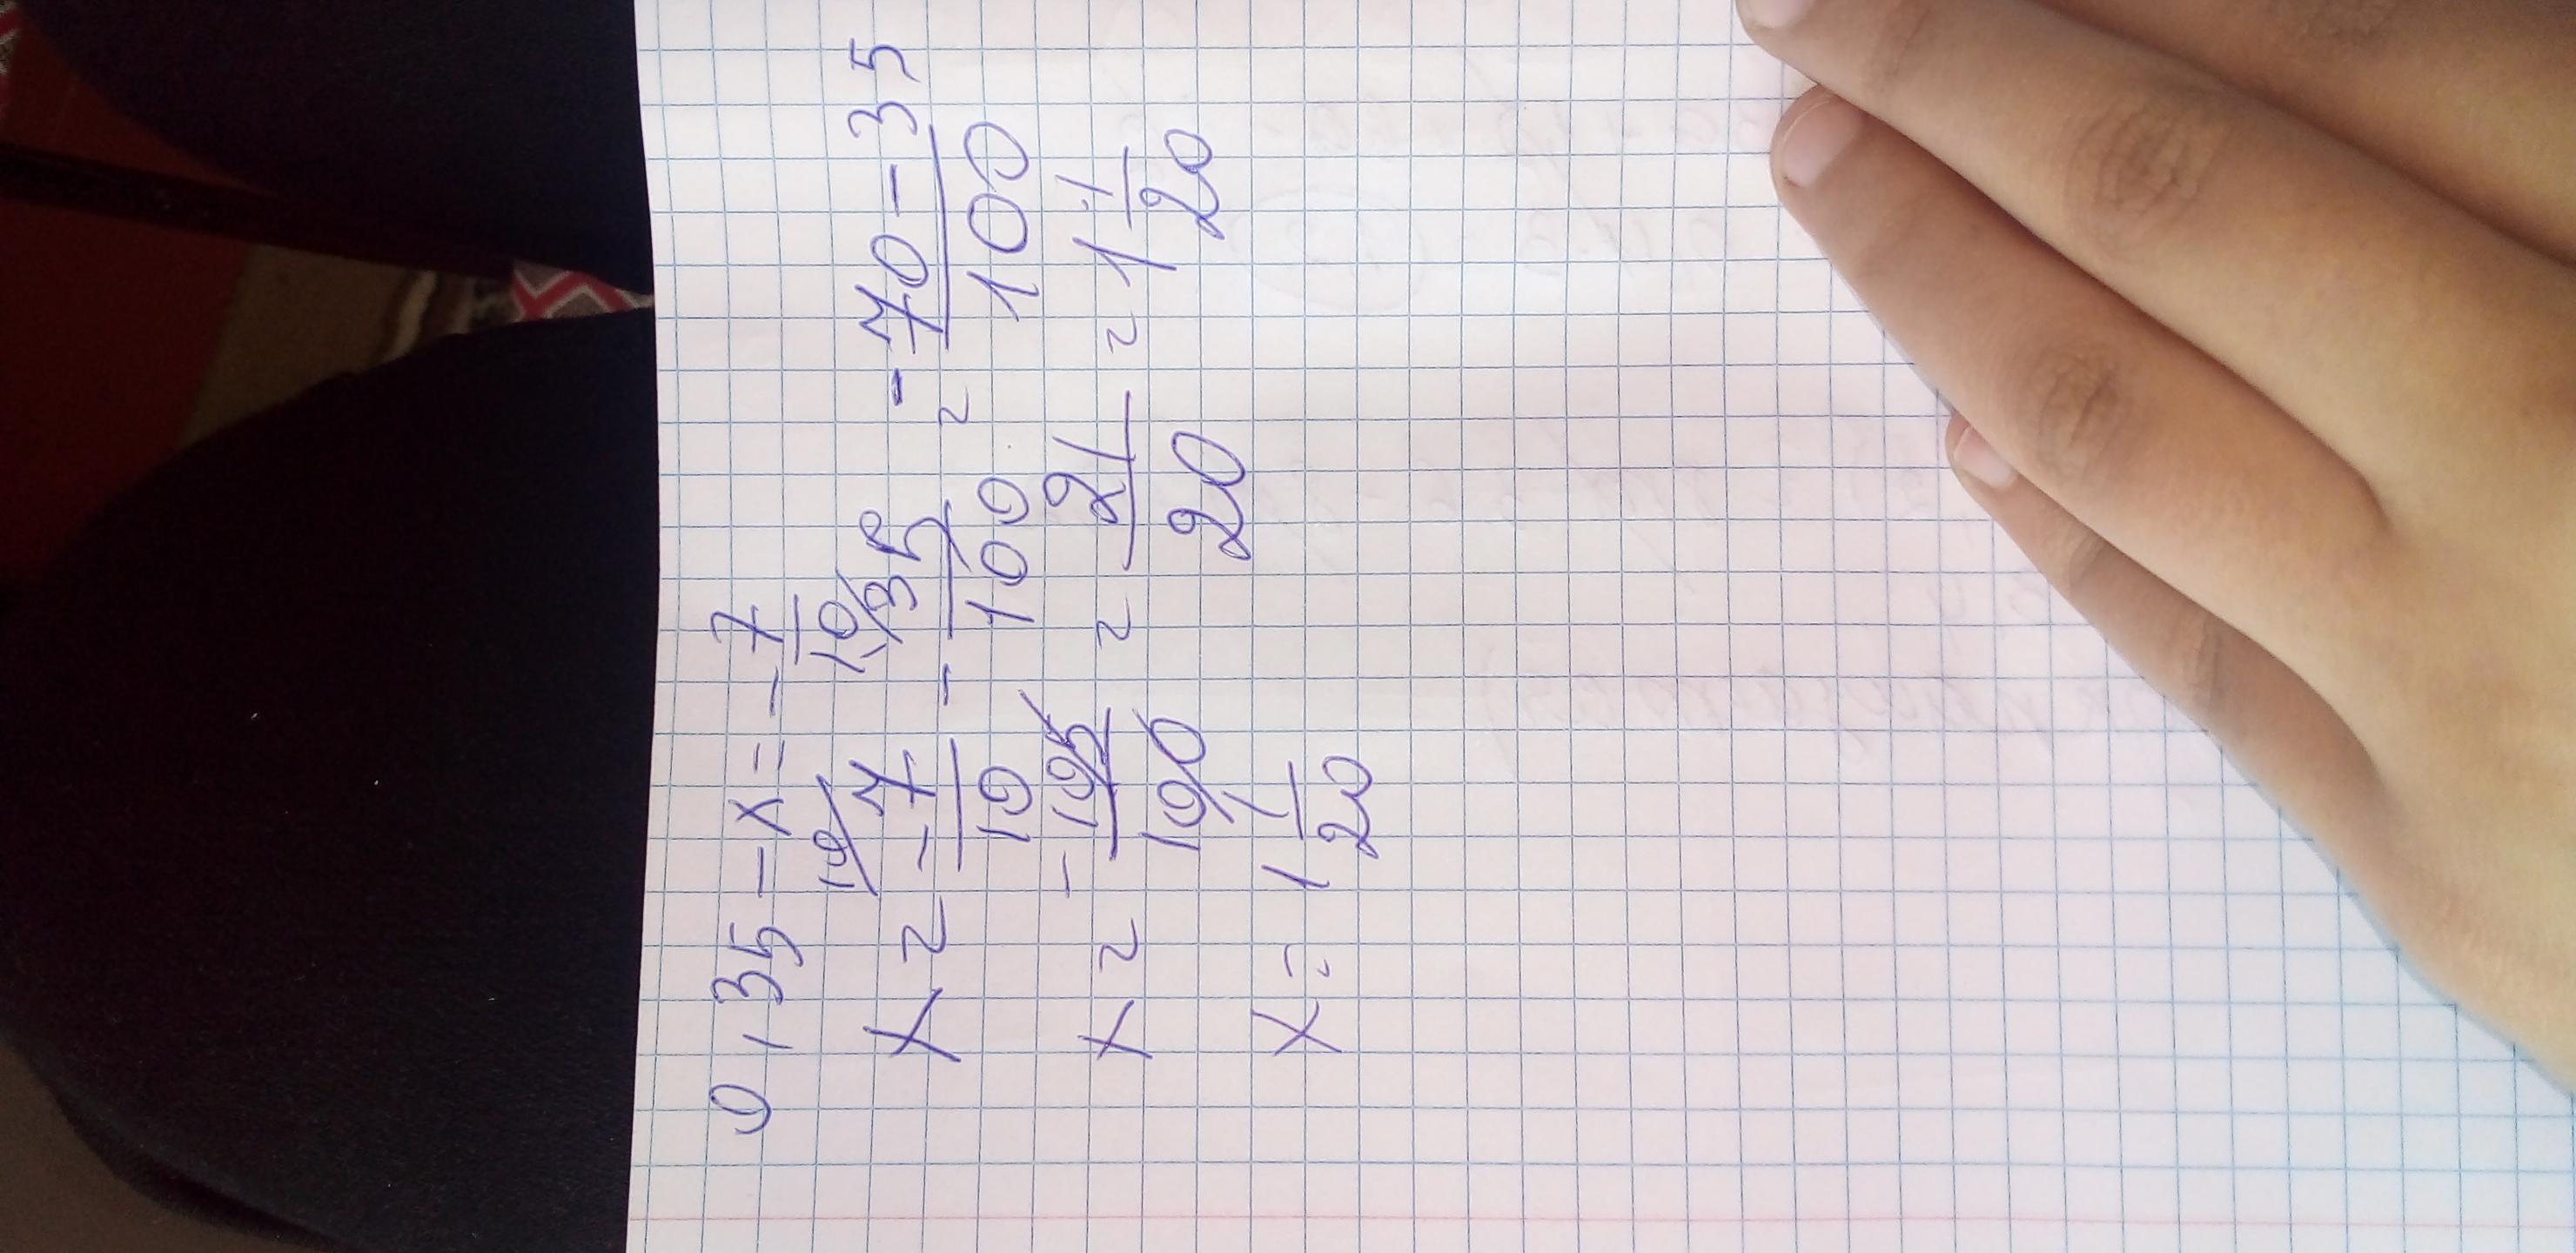 0,35 - x = - 7/10
x = - 7/10 - 35/100 = - 70 - 35/100
x = - 105/100 = 21/20 = 1 1/20
x = 1 1/20